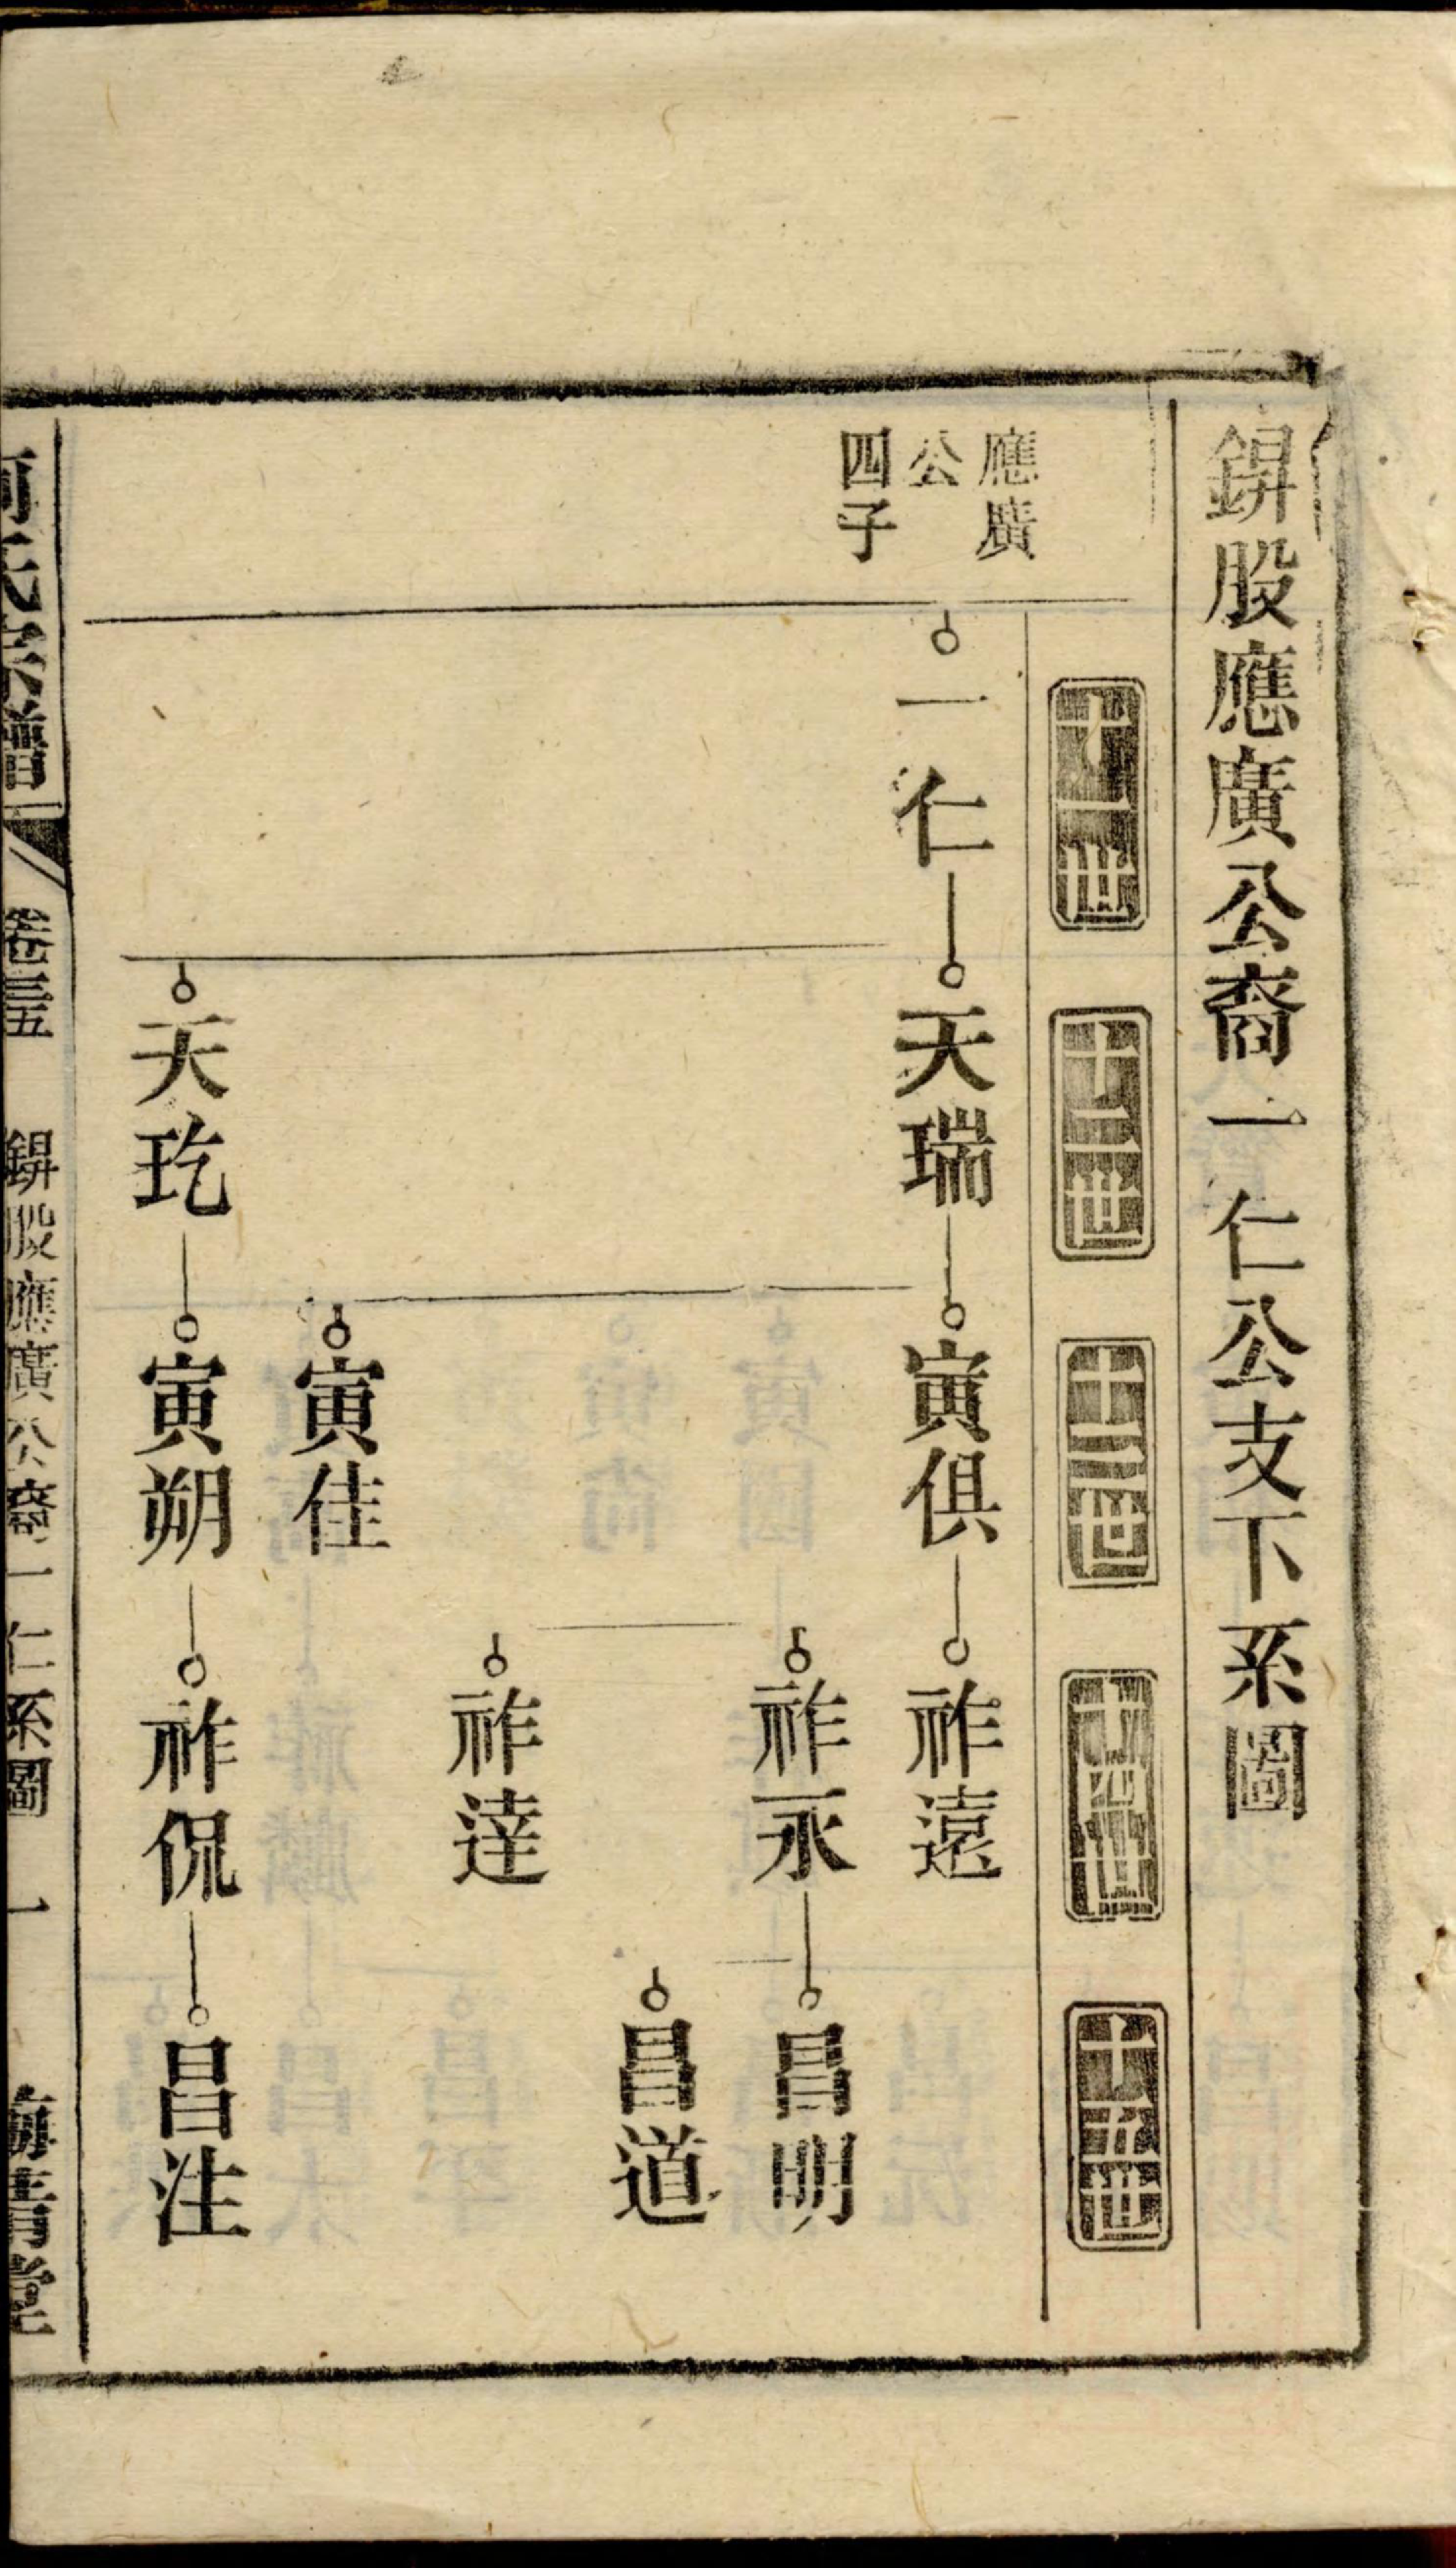 錋股應廣公裔一仁公支下系圖
十一世
十二世
十三世
十四世
十五世
應廣
公
四子
一仁
天瑞
寅俱
祚遠
祚永
昌明
昌道
祚達
寅佳
天玧
寅朔
祚侃
昌注
何氏宗譜
卷三五
股應廣公裔一仁系圖
一